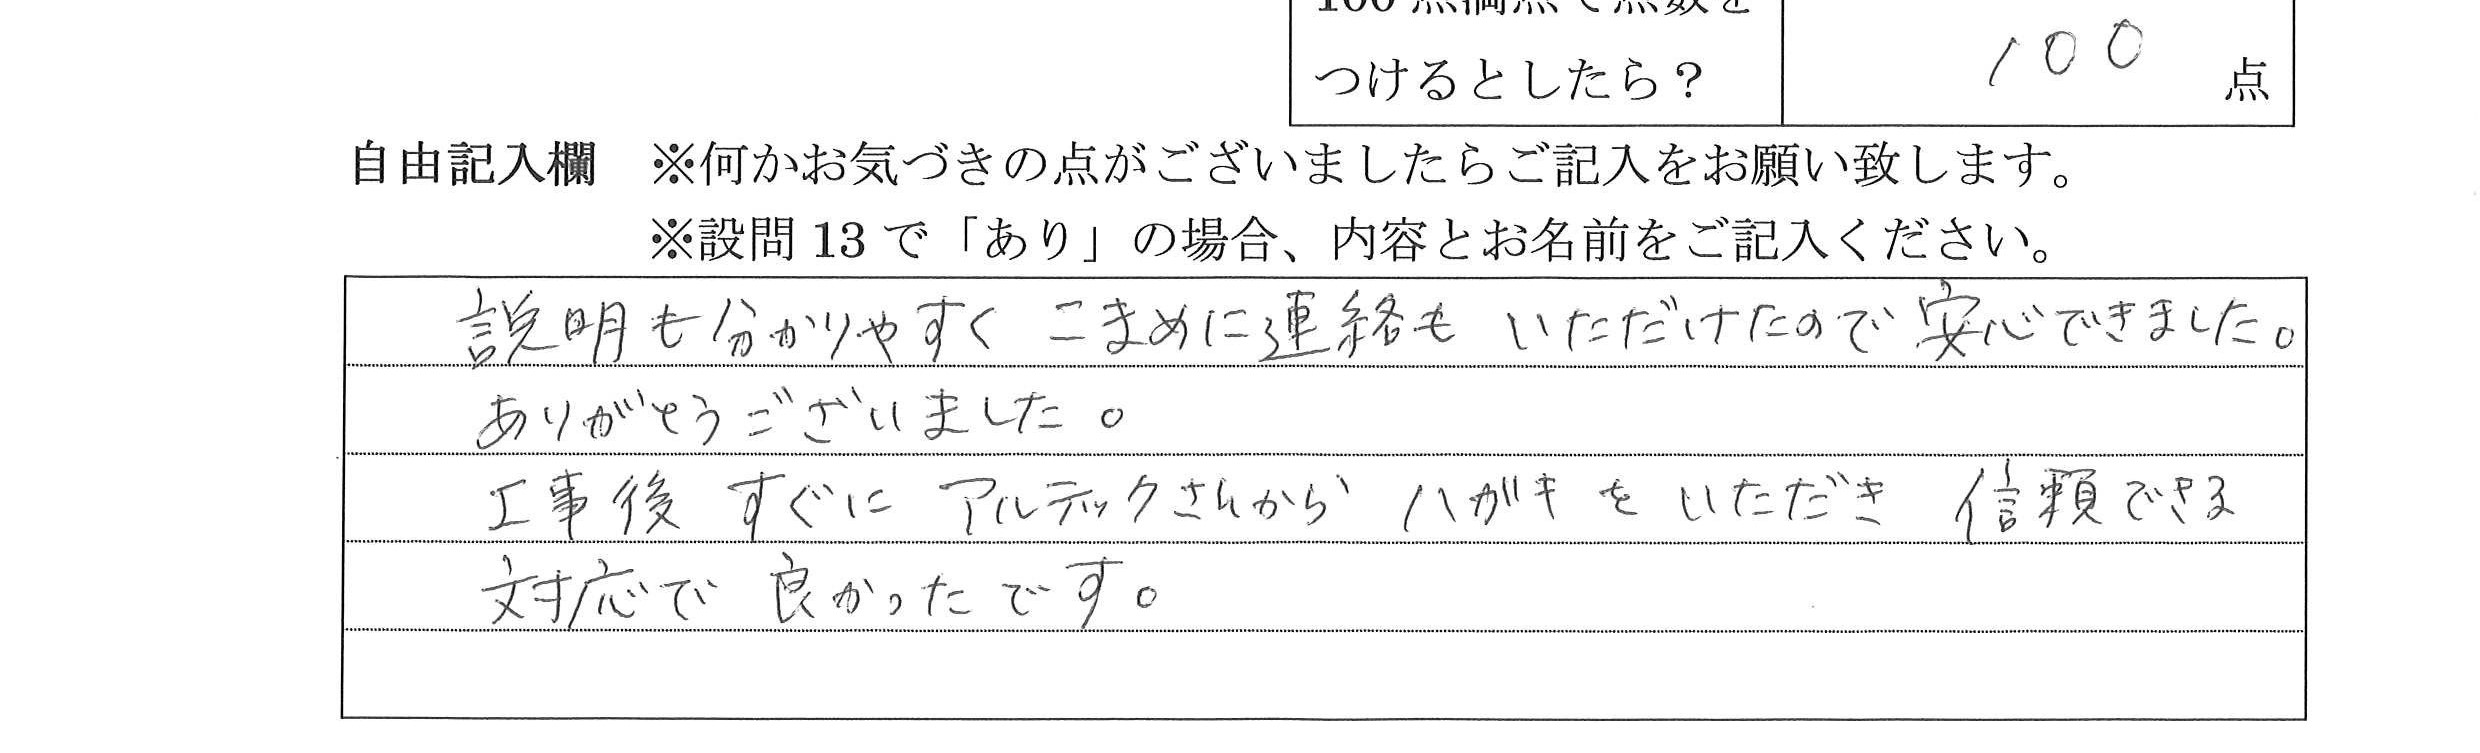 100点満点で点数を
つけるとしたら？
100 点
自由記入欄　※何かお気づきの点がございましたらご記入をお願い致します。
※設問13で「あり」の場合、内容とお名前をご記入ください。
説明も分かりやすく こまめに連絡も いただけたので 安心できました。
ありがとうございました。
工事後 すぐに アルテックさんから ハガキ を いただき 信頼できる
対応で 良かったです。